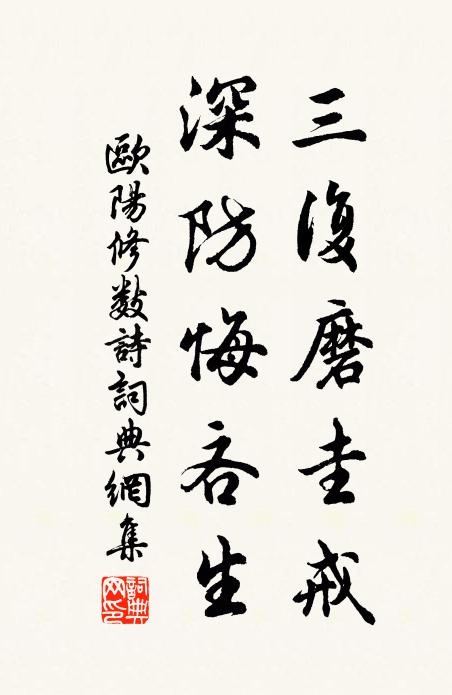 三復磨圭戒
深防悔吝生
歐陽修數詩詞典網集
詞典网印